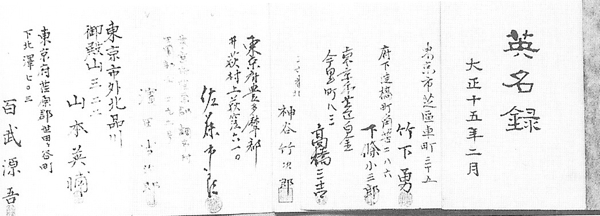 英名録
大正十五年二月
東京市芝區車町三十五
竹下勇
府下淀橋町角筈二八六
下條小三郎
東京市芝區白金
今里町八三
高橋三吉
神谷竹次郎
東京府豊多摩郡
井荻村上荻窪六一〇
佐藤市郎
東京市外北品川
御殿山三二二
山本英輔
東京府荏原郡世田ヶ谷町
下北澤七〇三
百武源吾